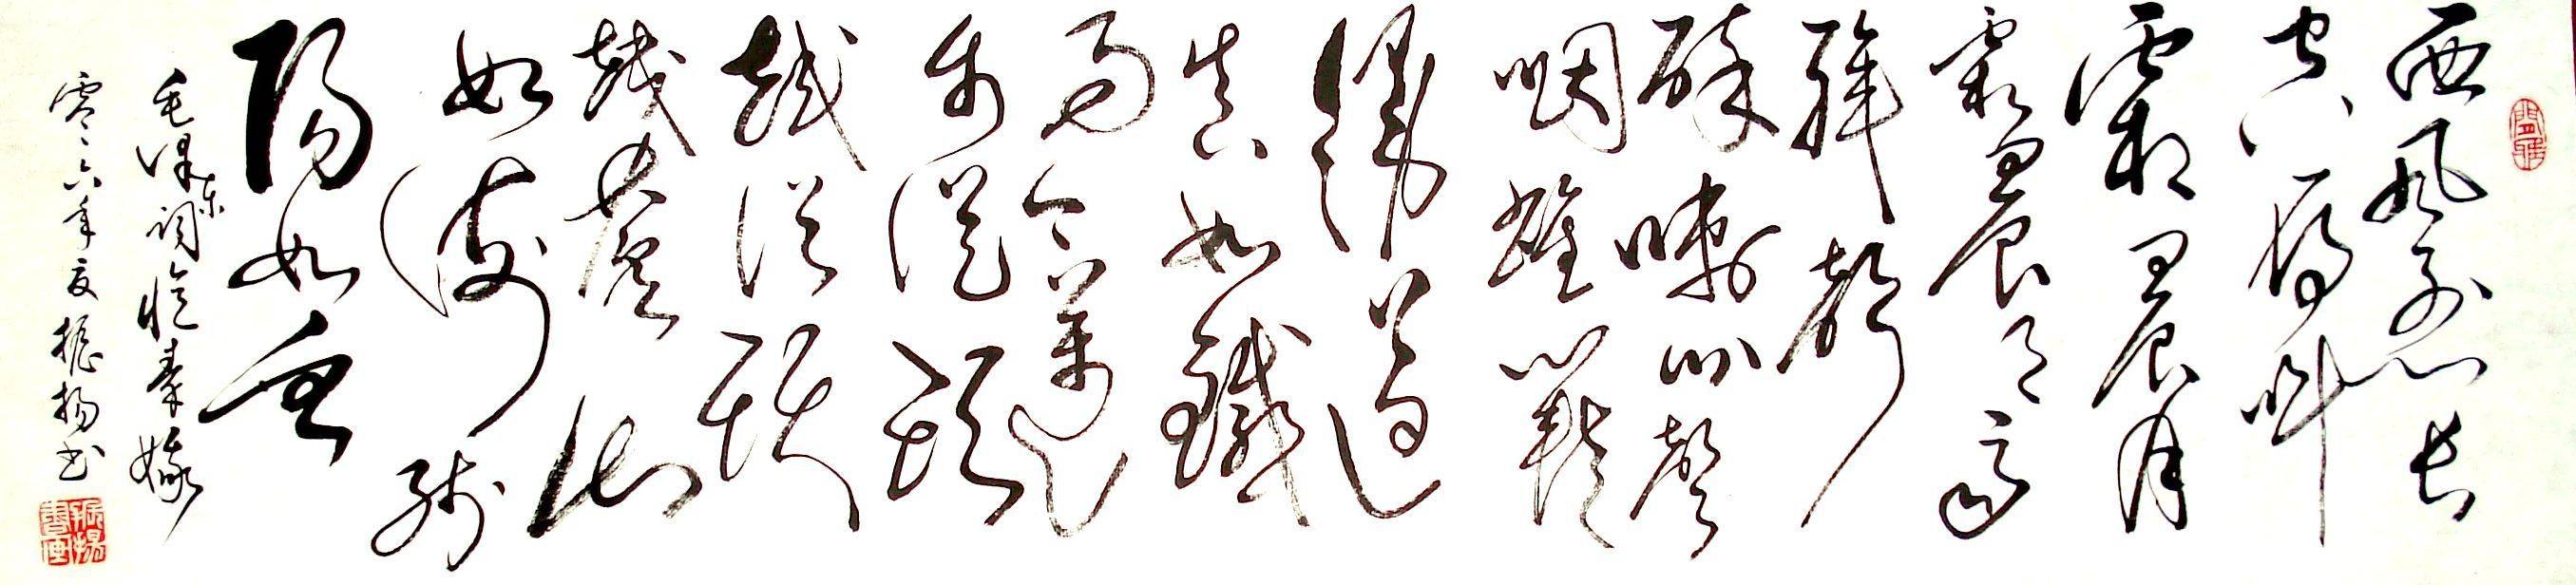 西風烈長
空雁叫
霜晨月
霜晨月馬
蹄聲
碎喇叭聲
咽雄關
漫道
真如鐵
而今邁
步從頭
越從頭
越蒼山
如海殘
陽如血
毛澤東詞憶秦娥
零零六年夏振揚書
振揚書畫